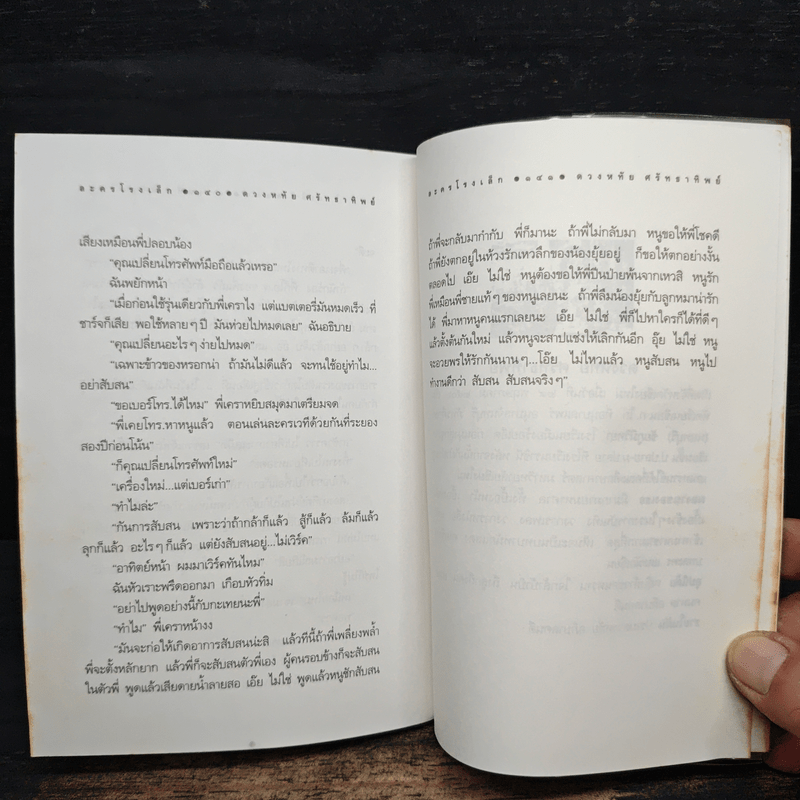 ละครโรงเล็ก ●๑๔๐● ดวงหทัย ศรัทธาทิพย์
เสียงเหมือนพี่ปลอบน้อง
“คุณเปลี่ยนโทรศัพท์มือถือแล้วเหรอ”
ฉันพยักหน้า
“เมื่อก่อนใช้รุ่นเดียวกับพี่เคราไง แต่แบตเตอรี่มันหมดเร็ว ที่
ชาร์จก็เสีย พอใช้หลายๆ ปี มันห่วยไปหมดเลย” ฉันอธิบาย
“คุณเปลี่ยนอะไรๆ ง่ายไปหมด”
“เฉพาะข้าวของหรอกน่า ถ้ามันไม่ดีแล้ว จะทนใช้อยู่ทำไม...
อย่าสับสน”
“ขอเบอร์โทร.ได้ไหม” พี่เคราหยิบสมุดมาเตรียมจด
“พี่เคยโทร.หาหนูแล้ว ตอนเล่นละครเวทีด้วยกันที่ระยอง
สองปีก่อนโน้น”
“ก็คุณเปลี่ยนโทรศัพท์ใหม่”
“เครื่องใหม่...แต่เบอร์เก่า”
“ทำไมล่ะ”
“กันการสับสน เพราะว่าถ้ากล้าก็แล้ว สู้ก็แล้ว ล้มก็แล้ว
ลุกก็แล้ว อะไรๆ ก็แล้ว แต่ยังสับสนอยู่...ไม่เวิร์ค”
“อาทิตย์หน้า ผมมาเวิร์คทันไหม”
ฉันหัวเราะพรืดออกมา เกือบหัวทิ่ม
“อย่าไปพูดอย่างนี้กับกะเทยนะพี่”
“ทำไม” พี่เคราหน้างง
“มันจะก่อให้เกิดอาการสับสนน่ะสิ แล้วทีนี้ถ้าพี่เพลี่ยงพล้ำ
พี่จะตั้งหลักยาก แล้วพี่ก็จะสับสนตัวพี่เอง ผู้คนรอบข้างก็จะสับสน
ในตัวพี่ พูดแล้วเสียดายน้ำลายสอ เอ๊ย ไม่ใช่ พูดแล้วหนูชักสับสน
ละครโรงเล็ก ●๑๔๑● ดวงหทัย ศรัทธาทิพย์
ถ้าพี่จะกลับมากำกับ พี่ก็มานะ ถ้าพี่ไม่กลับมา หนูขอให้พี่โชคดี
ถ้าพี่ยังตกอยู่ในห้วงรักเหวลึกของน้องยุ้ยอยู่ ก็ขอให้ตกอย่างงั้น
ตลอดไป เอ๊ย ไม่ใช่ หนูต้องขอให้พี่ปีนป่ายพ้นจากเหวสิ หนูรัก
พี่เหมือนพี่ชายแท้ๆ ของหนูเลยนะ ถ้าพี่ลืมน้องยุ้ยกับลูกหมาน่ารัก
ได้ พี่มาหาหนูคนแรกเลยนะ เอ๊ย ไม่ใช่ พี่ก็ไปหาใครก็ได้ที่ดีๆ
แล้วตั้งต้นกันใหม่ แล้วหนูจะสาปแช่งให้เลิกกันอีก อุ๊ย ไม่ใช่ หนู
จะอวยพรให้รักกันนานๆ...โอ๊ย ไม่ไหวแล้ว หนูสับสน หนูไป
ทำงานดีกว่า สับสน สับสนจริงๆ”